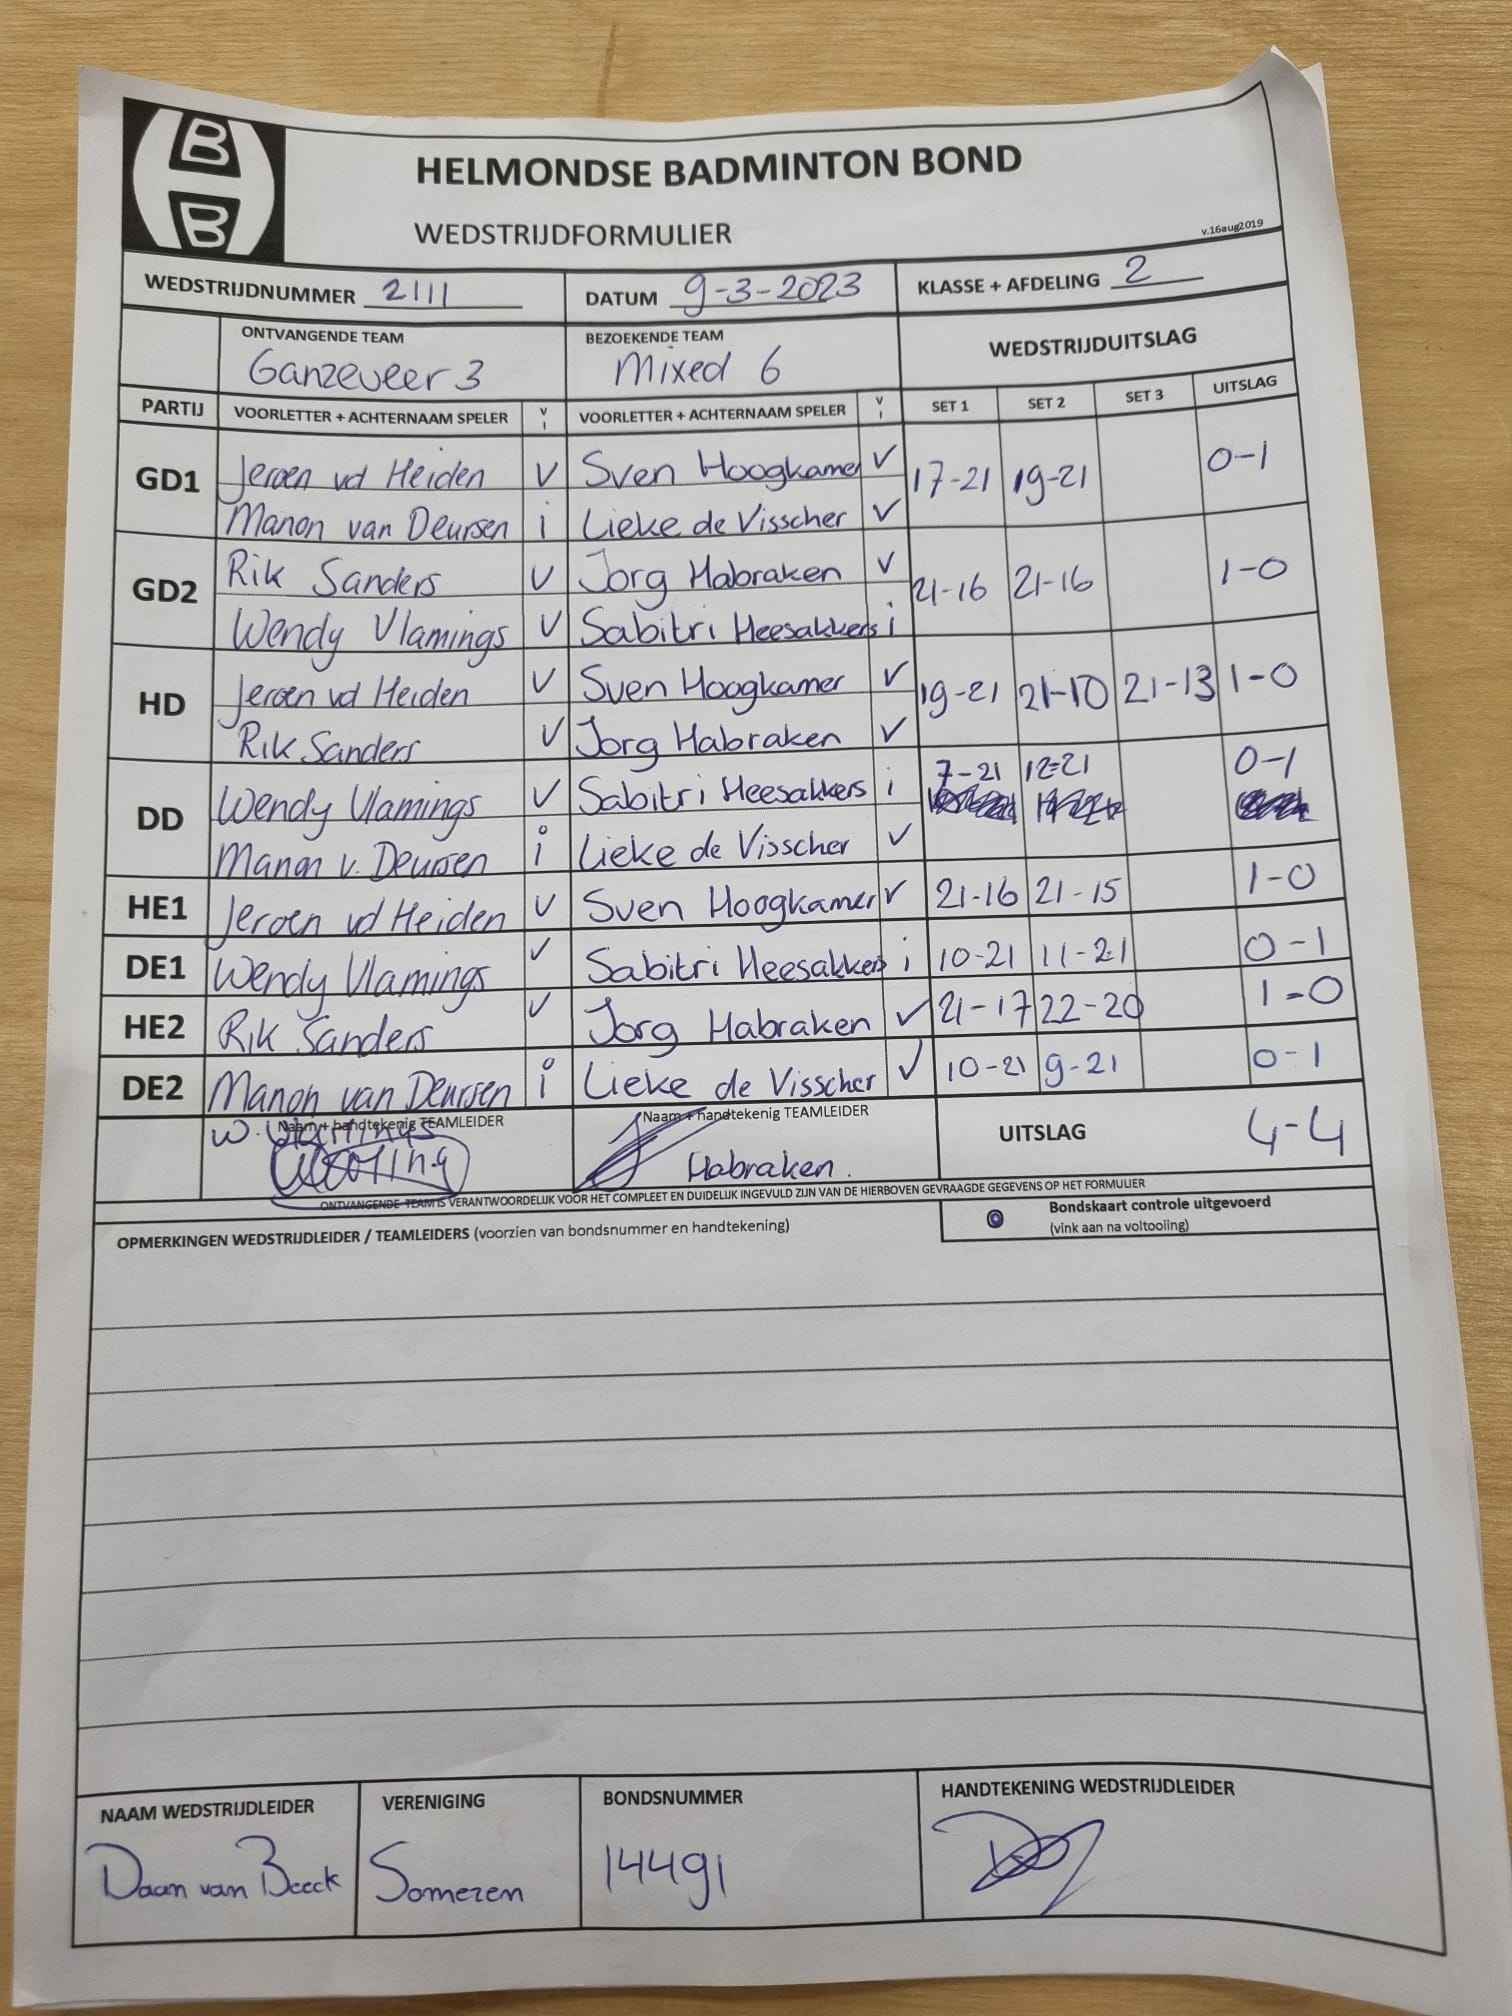 B
B
HELMONDSE BADMINTON BOND
WEDSTRIJDFORMULIER
v.16aug2019
WEDSTRIJDNUMMER 2111 DATUM 9-3-2023 KLASSE + AFDELING 2
ONTVANGENDE TEAM BEZOEKENDE TEAM WEDSTRIJDUITSLAG
Ganzeveer 3 Mixed 6
PARTIJ VOORLETTER + ACHTERNAAM SPELER V I VOORLETTER + ACHTERNAAM SPELER V I SET 1 SET 2 SET 3 UITSLAG
GD1 Jeroen vd Heiden V Sven Hoogkamer V 17-21 19-21 0-1
Manon van Deursen i Lieke de Visscher V
GD2 Rik Sanders V Jorg Habraken V 21-16 21-16 1-0
Wendy Vlamings V Sabitri Heesakkers i
HD Jeroen vd Heiden V Sven Hoogkamer V 19-21 21-10 21-13 1-0
Rik Sanders V Jorg Habraken V
DD Wendy Vlamings V Sabitri Heesakkers i 7-21 12-21 0-1
Manon v. Deursen i Lieke de Visscher V
HE1 Jeroen vd Heiden V Sven Hoogkamer V 21-16 21-15 1-0
DE1 Wendy Vlamings V Sabitri Heesakkers i 10-21 11-21 0-1
HE2 Rik Sanders V Jorg Habraken V 21-17 22-20 1-0
DE2 Manon van Deursen i Lieke de Visscher V 10-21 9-21 0-1
Naam + handtekenig TEAMLEIDER Naam + handtekenig TEAMLEIDER UITSLAG 4-4
W. Vlamings Habraken.
ONTVANGENDE TEAM IS VERANTWOORDELIJK VOOR HET COMPLEET EN DUIDELIJK INGEVULD ZIJN VAN DE HIERBOVEN GEVRAAGDE GEGEVENS OP HET FORMULIER
OPMERKINGEN WEDSTRIJDLEIDER / TEAMLEIDERS (voorzien van bondsnummer en handtekening) Bondskaart controle uitgevoerd
(vink aan na voltooiing)
NAAM WEDSTRIJDLEIDER VERENIGING BONDSNUMMER HANDTEKENING WEDSTRIJDLEIDER
Daan van Beeck Someren 14491